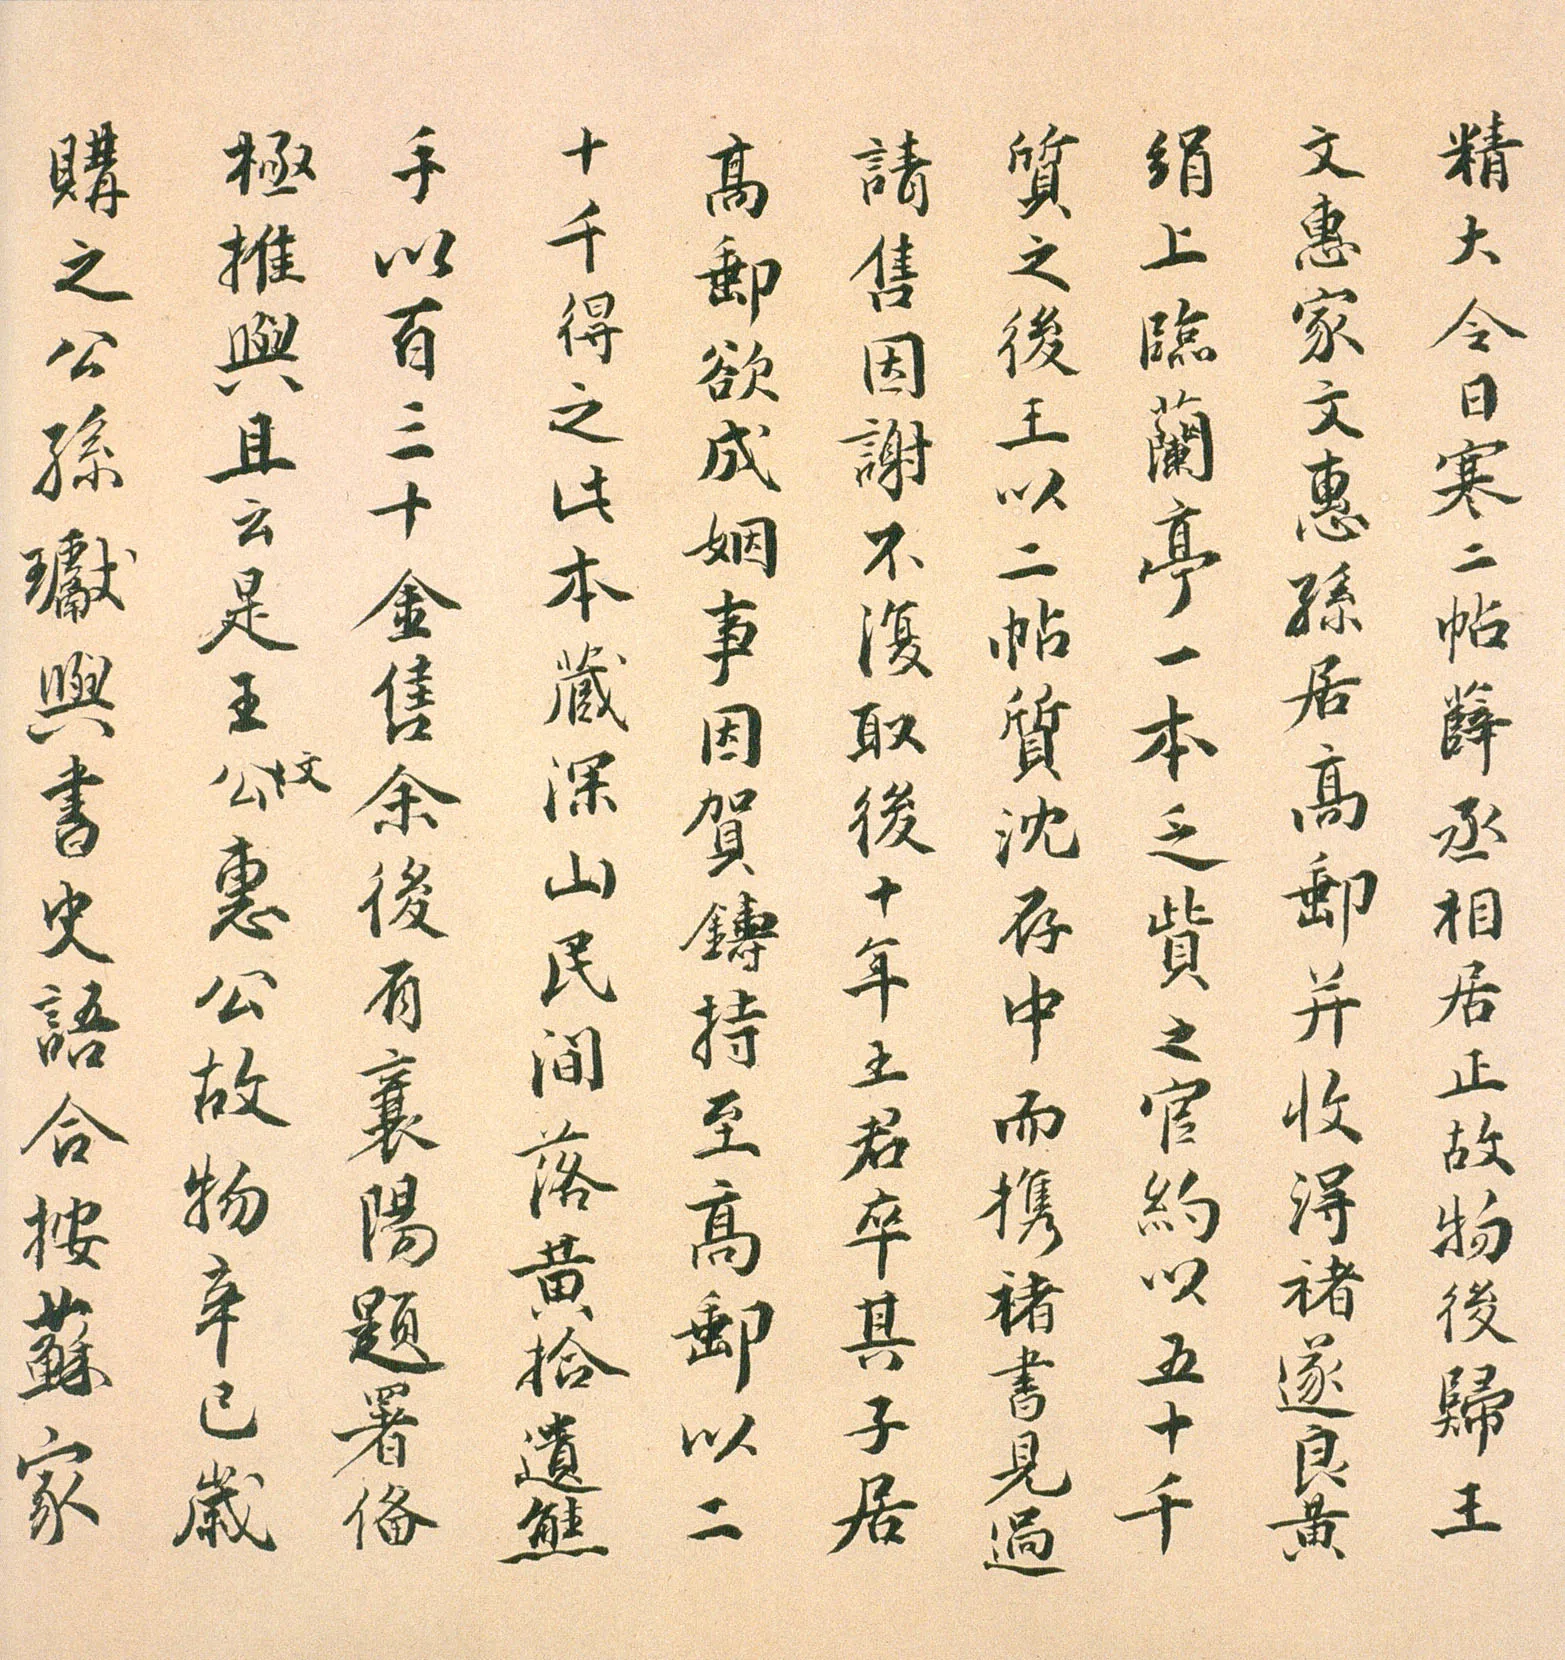 精大令日寒二帖薛丞相居正故物後歸王
文惠家文惠孫居高郵并收得褚遂良黄
絹上臨蘭亭一本乏貲之官約以五十千
質之後王以二帖質沈存中而攜褚書見過
請售因謝不復取後十年王君卒其子居
高郵欲成姻事因賀鑄持至高郵以二
十千得之此本藏深山民間落黄拾遺熊
手以百三十金售余後有襄陽題署俻
極推與且云是王公文惠公故物辛巳歲
購之公孫瓛與書史語合按蘇家